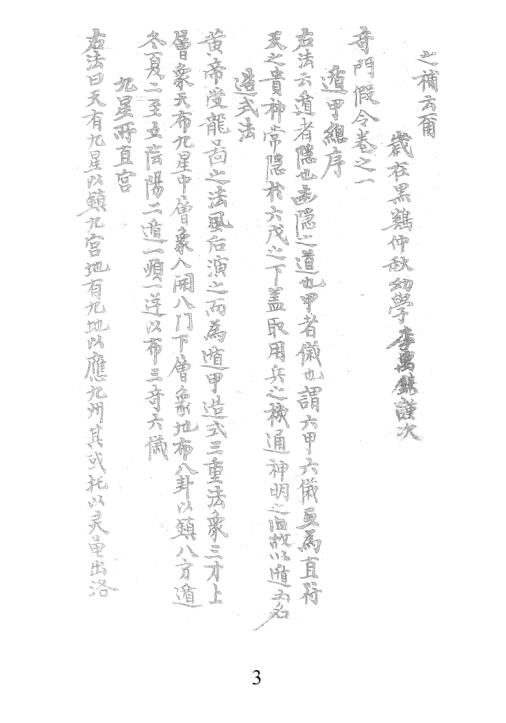 之補云爾
歲在黑鷄仲秋幼學李謹次
奇門假令卷之一
遁甲總序
右法云遁者隱也幽隱之道也甲者儀也謂六甲六儀更爲直符
天之貴神常隱於六戊之下盖取用兵之機通神明之故以遁爲名
造式法
黃帝受龍啚之法風后演之而爲遁甲造式三重法象三才上
層象天布九星中層象人開八门下層象地布八卦以鎮八方遁
冬夏二至立陰陽二遁一順一逆以布三奇六儀
九星所直宮
右法曰天有九星以鎮九宮地有九地以應九州其或托以灵黾出洛
3